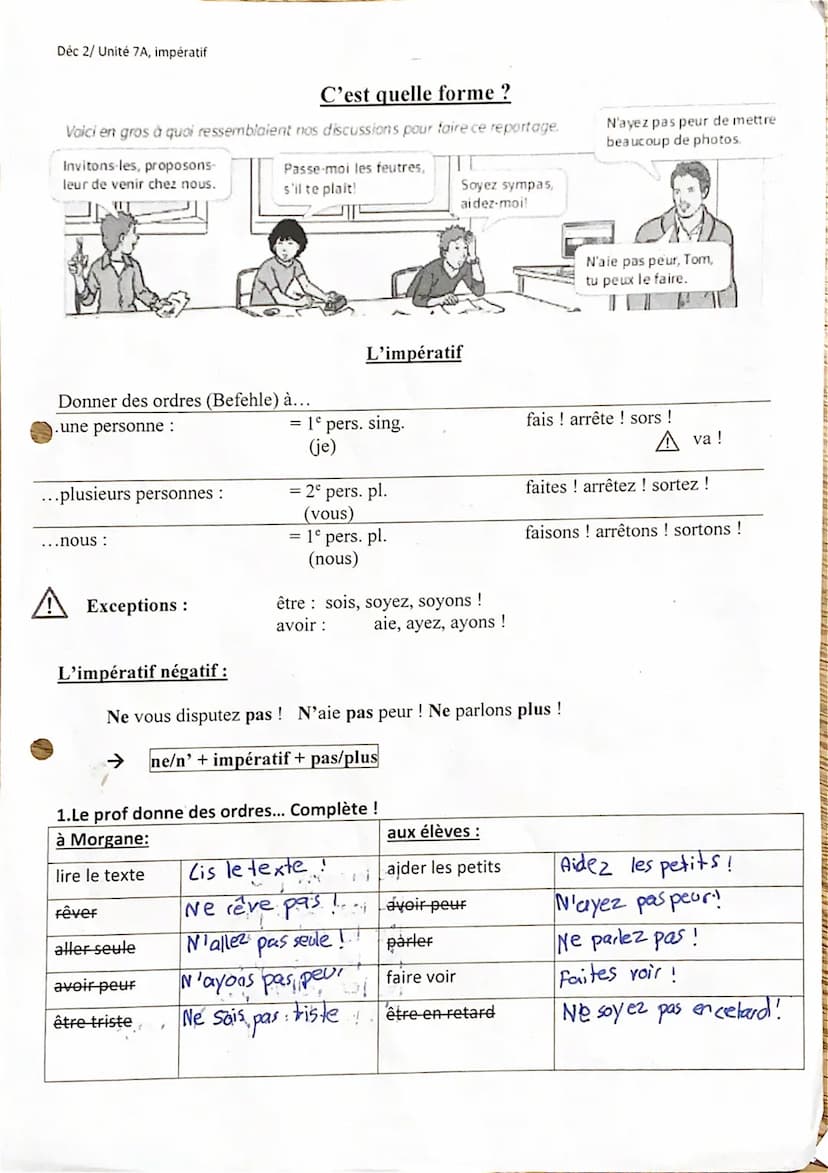 Déc 2/ Unité 7A, impératif
C'est quelle forme ?
Voici en gros à quoi ressemblaient nos discussions pour faire ce reportage.
N'ayez pas peur de mettre
beaucoup de photos.
Invitons-les, proposons-
leur de venir chez nous.
Passe-moi les feutres,
s'il te plaît!
Soyez sympas,
aidez-moi!
N'aie pas peur, Tom,
tu peux le faire.
L'impératif
Donner des ordres (Befehle) à…
.une personne : = 1e pers. sing. fais ! arrête ! sors !
(je) va !
…plusieurs personnes : = 2e pers. pl. faites ! arrêtez ! sortez !
(vous)
…nous : = 1e pers. pl. faisons ! arrêtons ! sortons !
(nous)
Exceptions : être : sois, soyez, soyons !
avoir : aie, ayez, ayons !
L'impératif négatif :
Ne vous disputez pas ! N'aie pas peur ! Ne parlons plus !
→ ne/n' + impératif + pas/plus
1.Le prof donne des ordres… Complète !
à Morgane: aux élèves :
lire le texte Lis le texte ! ajder les petits Aidez les petits !
rêver Ne rêve pas ! avoir peur N'ayez pas peur!
aller seule N'allez pas seule ! parler Ne parlez pas !
avoir peur N'ayons pas peur faire voir Faites voir !
être triste Ne sois pas triste ! être en retard Ne soyez pas en retard!